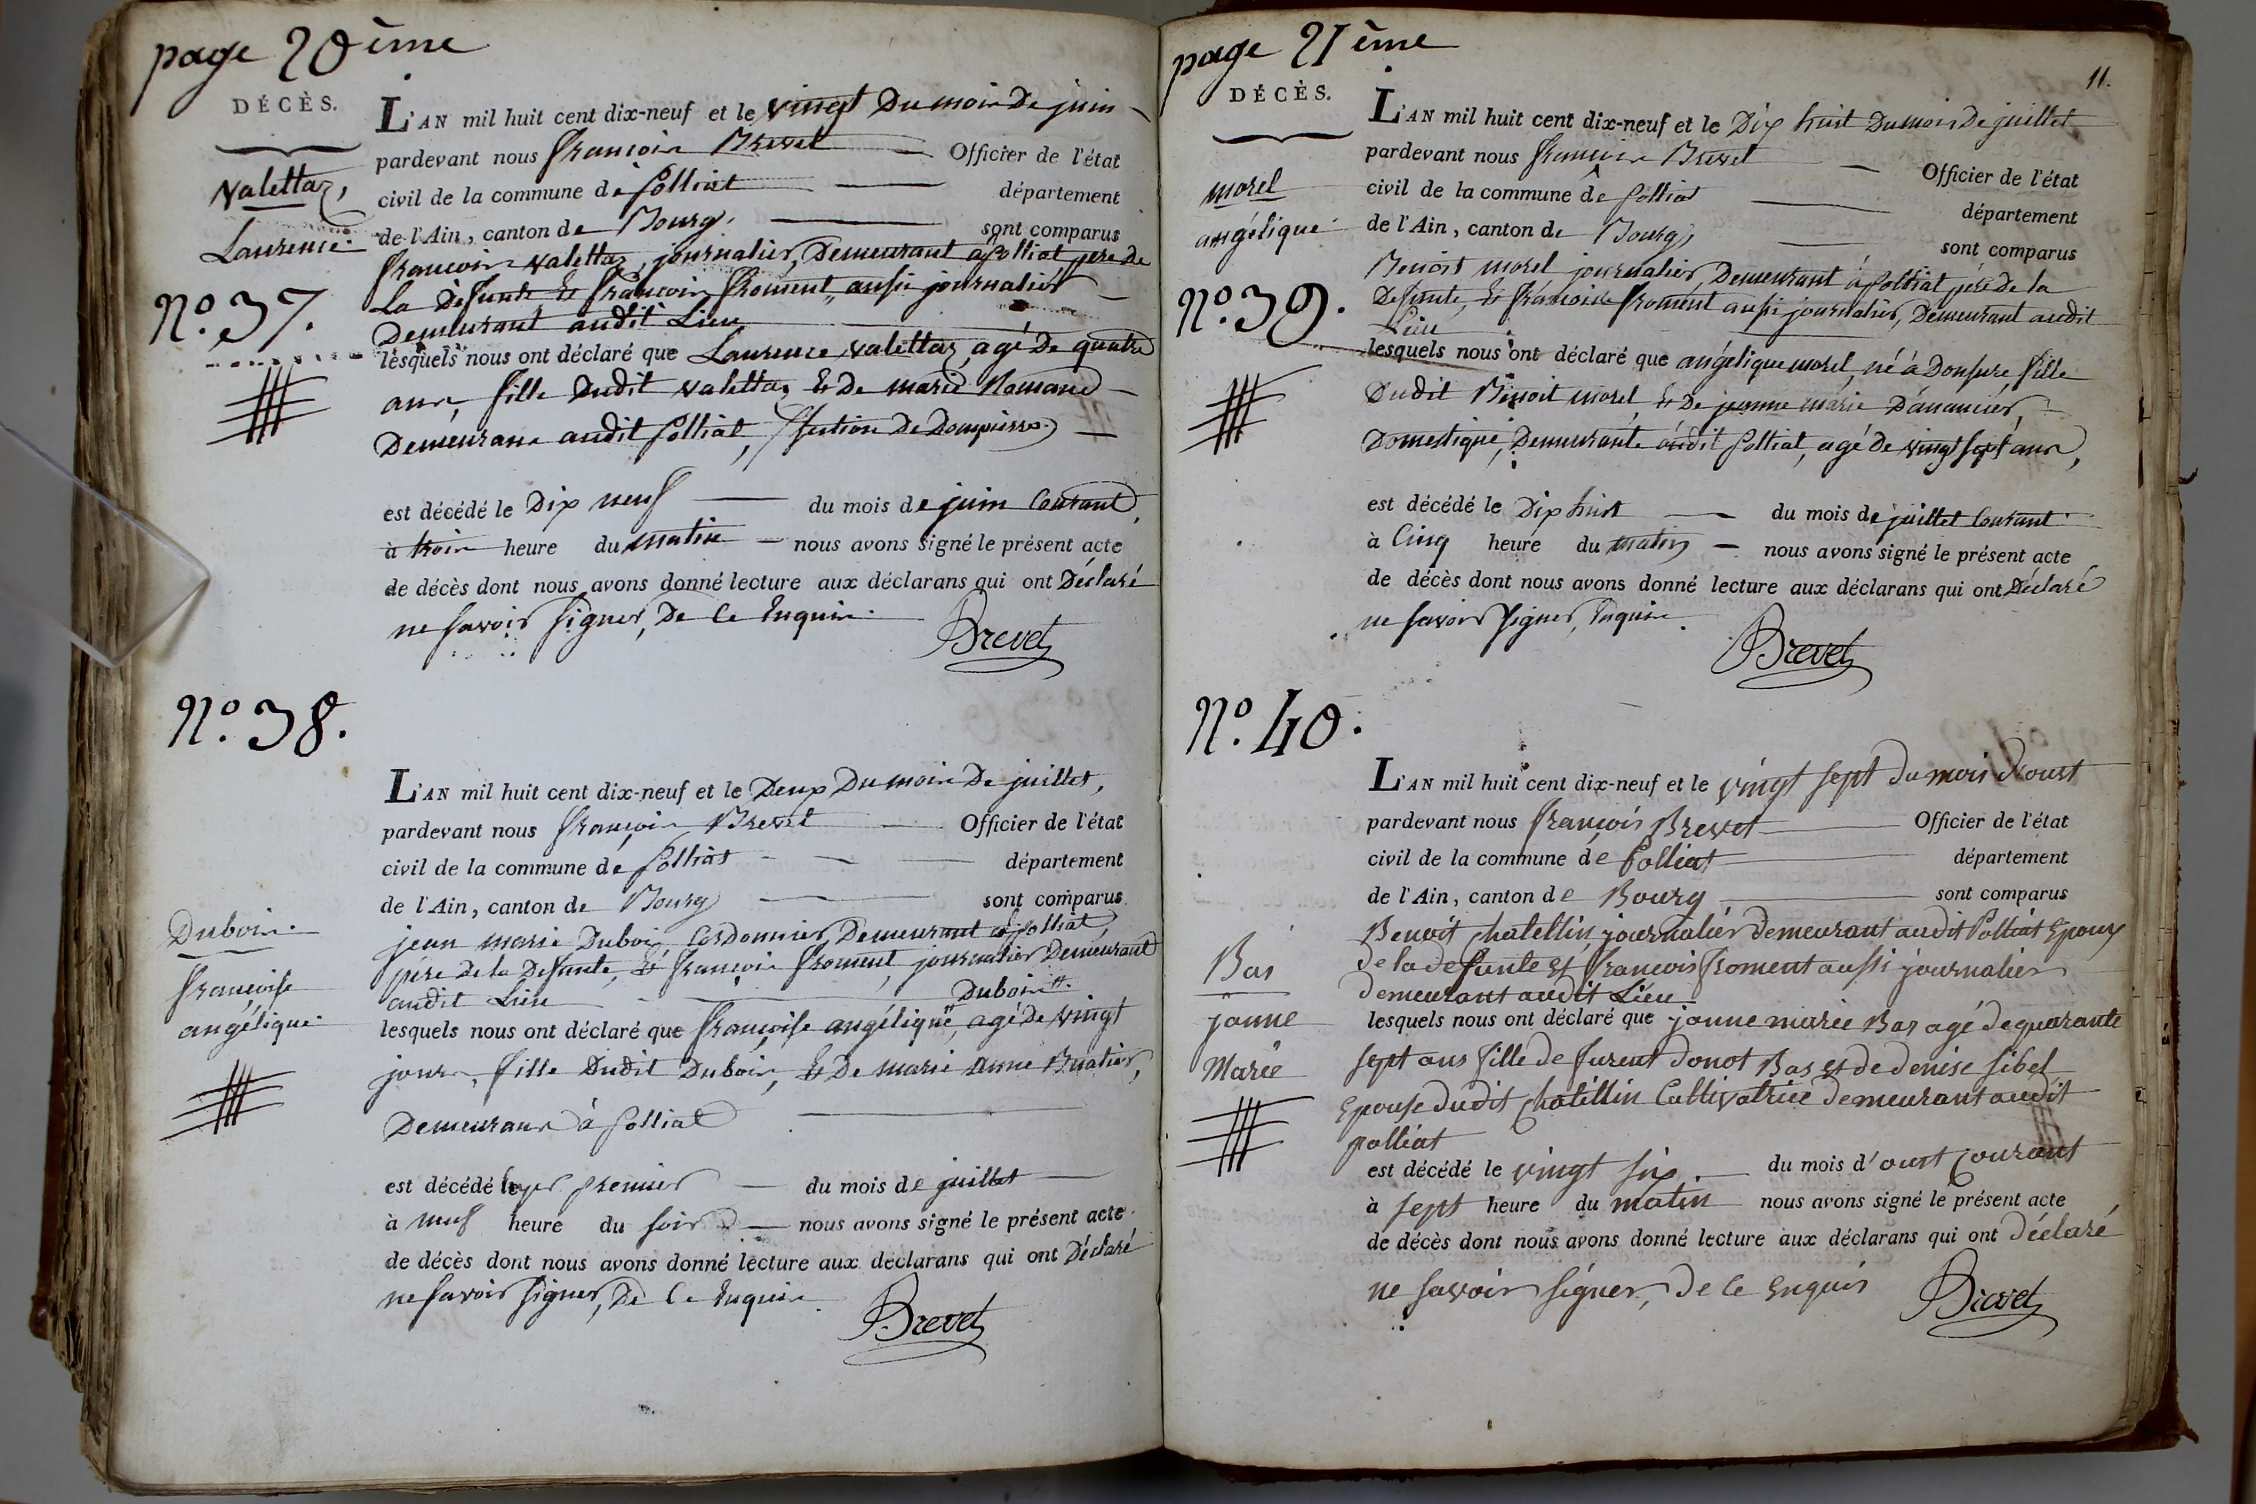 page 20ème
DÉCÈS.
L'AN mil huit cent dix-neuf et le vingt Du mois De juin
pardevant nous françois Brevet Officier de l'état
civil de la commune de polliat département
de l'Ain, canton de Bourg, sont comparus
françois valettaz, journalier, Demeurant à polliat pere De
La Defunte Et françois froment, aussi journalier
Demeurant audit Lieu
lesquels nous ont déclaré que Laurence valettaz, agé De quatre
ans, fille Dudit valettaz, Et De marie Romand
Demeurans audit polliat, (section De Dompierre)
est décédé le Dix neuf du mois de juin Courant,
à trois heure du matin nous avons signé le présent acte
de décès dont nous avons donné lecture aux déclarans qui ont Déclaré
ne savoir signer, De Ce Enquis.
Brevet
valettaz,
Laurence.
N.o 37.
N.o 38.
L'AN mil huit cent dix-neuf et le Deux Du mois De juillet,
pardevant nous françois Brevet Officier de l'état
civil de la commune de polliat département
de l'Ain, canton de Bourg sont comparus
jean marie Dubois Cordonnier Demeurant à polliat,
père De la Defunte, Et françois froment, journalier Demeurant
audit Lieu Dubois
lesquels nous ont déclaré que françoise angélique, agé De vingt
jours, fille Dudit Dubois, Et De marie Anne Buatier,
Demeurans à polliat
est décédé hyer premier du mois de juillet
à neuf heure du soir nous avons signé le présent acte
de décès dont nous avons donné lecture aux déclarans qui ont Déclaré
ne savoir signer, De Ce Enquis.
Brevet
Dubois.
françoise
angélique.
page 21ème
11.
DÉCÈS.
L'AN mil huit cent dix-neuf et le Dix huit Du mois De juillet
pardevant nous françois Brevet Officier de l'état
civil de la commune de polliat département
de l'Ain, canton de Bourg, sont comparus
Benoit morel journalier, Demeurant à polliat père De la
Defunte, Et françois froment aussi journalier, Demeurant audit
Lieu
lesquels nous ont déclaré que angélique morel, né à Donsure, fille
Dudit Benoit morel, Et De jeanne marie Danancier,
Domestique, Demeurante audit polliat, agé De vingt sept ans,
est décédé le Dix huit du mois de juillet Courant
à Cinq heure du matin nous avons signé le présent acte
de décès dont nous avons donné lecture aux déclarans qui ont Déclaré
ne savoir signer, Enquis.
Brevet
morel
angélique
N.o 39.
N.o 40.
L'AN mil huit cent dix-neuf et le vingt sept du mois d'oust
pardevant nous françois Brevet Officier de l'état
civil de la commune de Polliat département
de l'Ain, canton de Bourg sont comparus
Benoit Chatellin journalier demeurant audit Polliat Epoux
de la defunte et francois froment aussi journalier
demeurant audit Lieu
lesquels nous ont déclaré que janne marie Bas agé de quarante
sept ans fille de furent donot Bas et de denise sibel
Epouse dudit Chatellin Cultivatrice demeurant audit
polliat
est décédé le vingt six du mois d'oust Courant
à sept heure du matin nous avons signé le présent acte
de décès dont nous avons donné lecture aux déclarans qui ont déclaré
ne savoir signer, de Ce Enquis
Brevet
Bas
janne
Marie